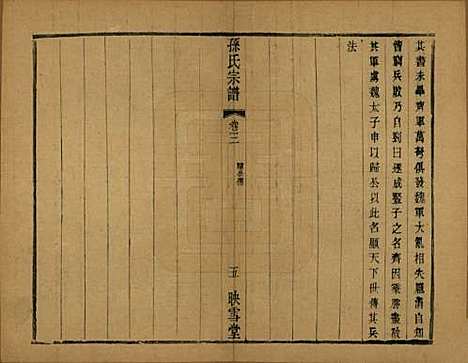 其書未畢齊軍萬弩俱發魏軍大亂相失龐涓自知
智窮兵敗乃自刭曰遂成豎子之名齊因乘勝盡破
其軍虜魏太子申以歸公以此名顯天下世傳其兵
法
孫氏宗譜
卷之二
五 映雪堂